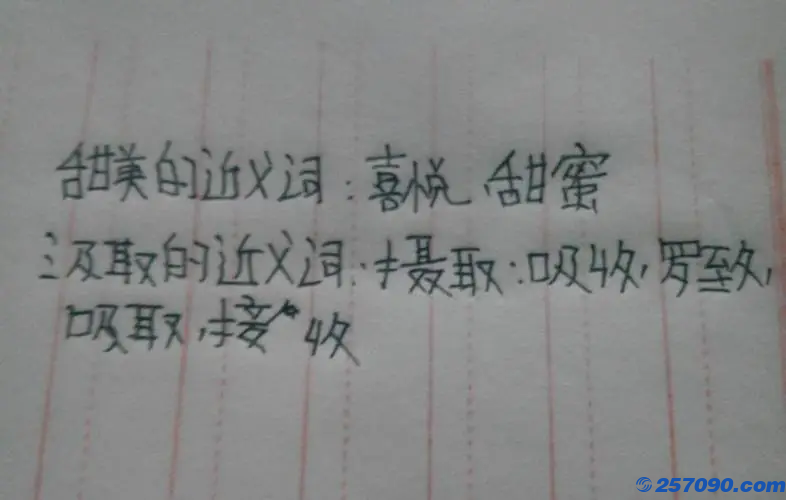 甜美的近义词:喜悦、甜蜜
汲取的近义词:摄取:吸收,罗致,
吸取,接收
257090.com